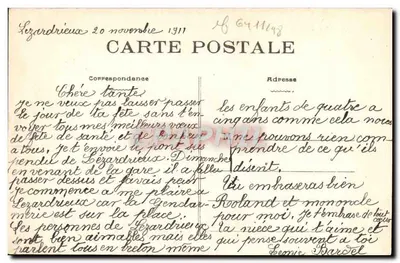 Lezardrieux 20 novembre 1911
CARTE POSTALE
Correspondance
Adresse
Chère tante
je ne veux pas laisser passer
le jour de ta fête sans t'en
voyer tous mes meilleurs vœux
de fête de santé et de
a tous, je t'envoie le pont sus
pendu de Lezardrieux. Dimanche
en venant de la gare il a fallu
passer dessus et j'avais peur
je commence a me plaire a
Lezardrieux car la Gendar
mérie est sur la place.
Les personnes de Lezardrieux
sont bien aimables mais elles
parlent tous en breton même
les enfants de quatre a
cinq ans comme cela nous
ne pouvons rien com
prendre de ce qu'ils
disent.
Tu embrasseras bien
Roland et mononcle
pour moi. Je t'embrasse de tout cœur
ta nièce qui t'aime et
qui pense souvent a toi